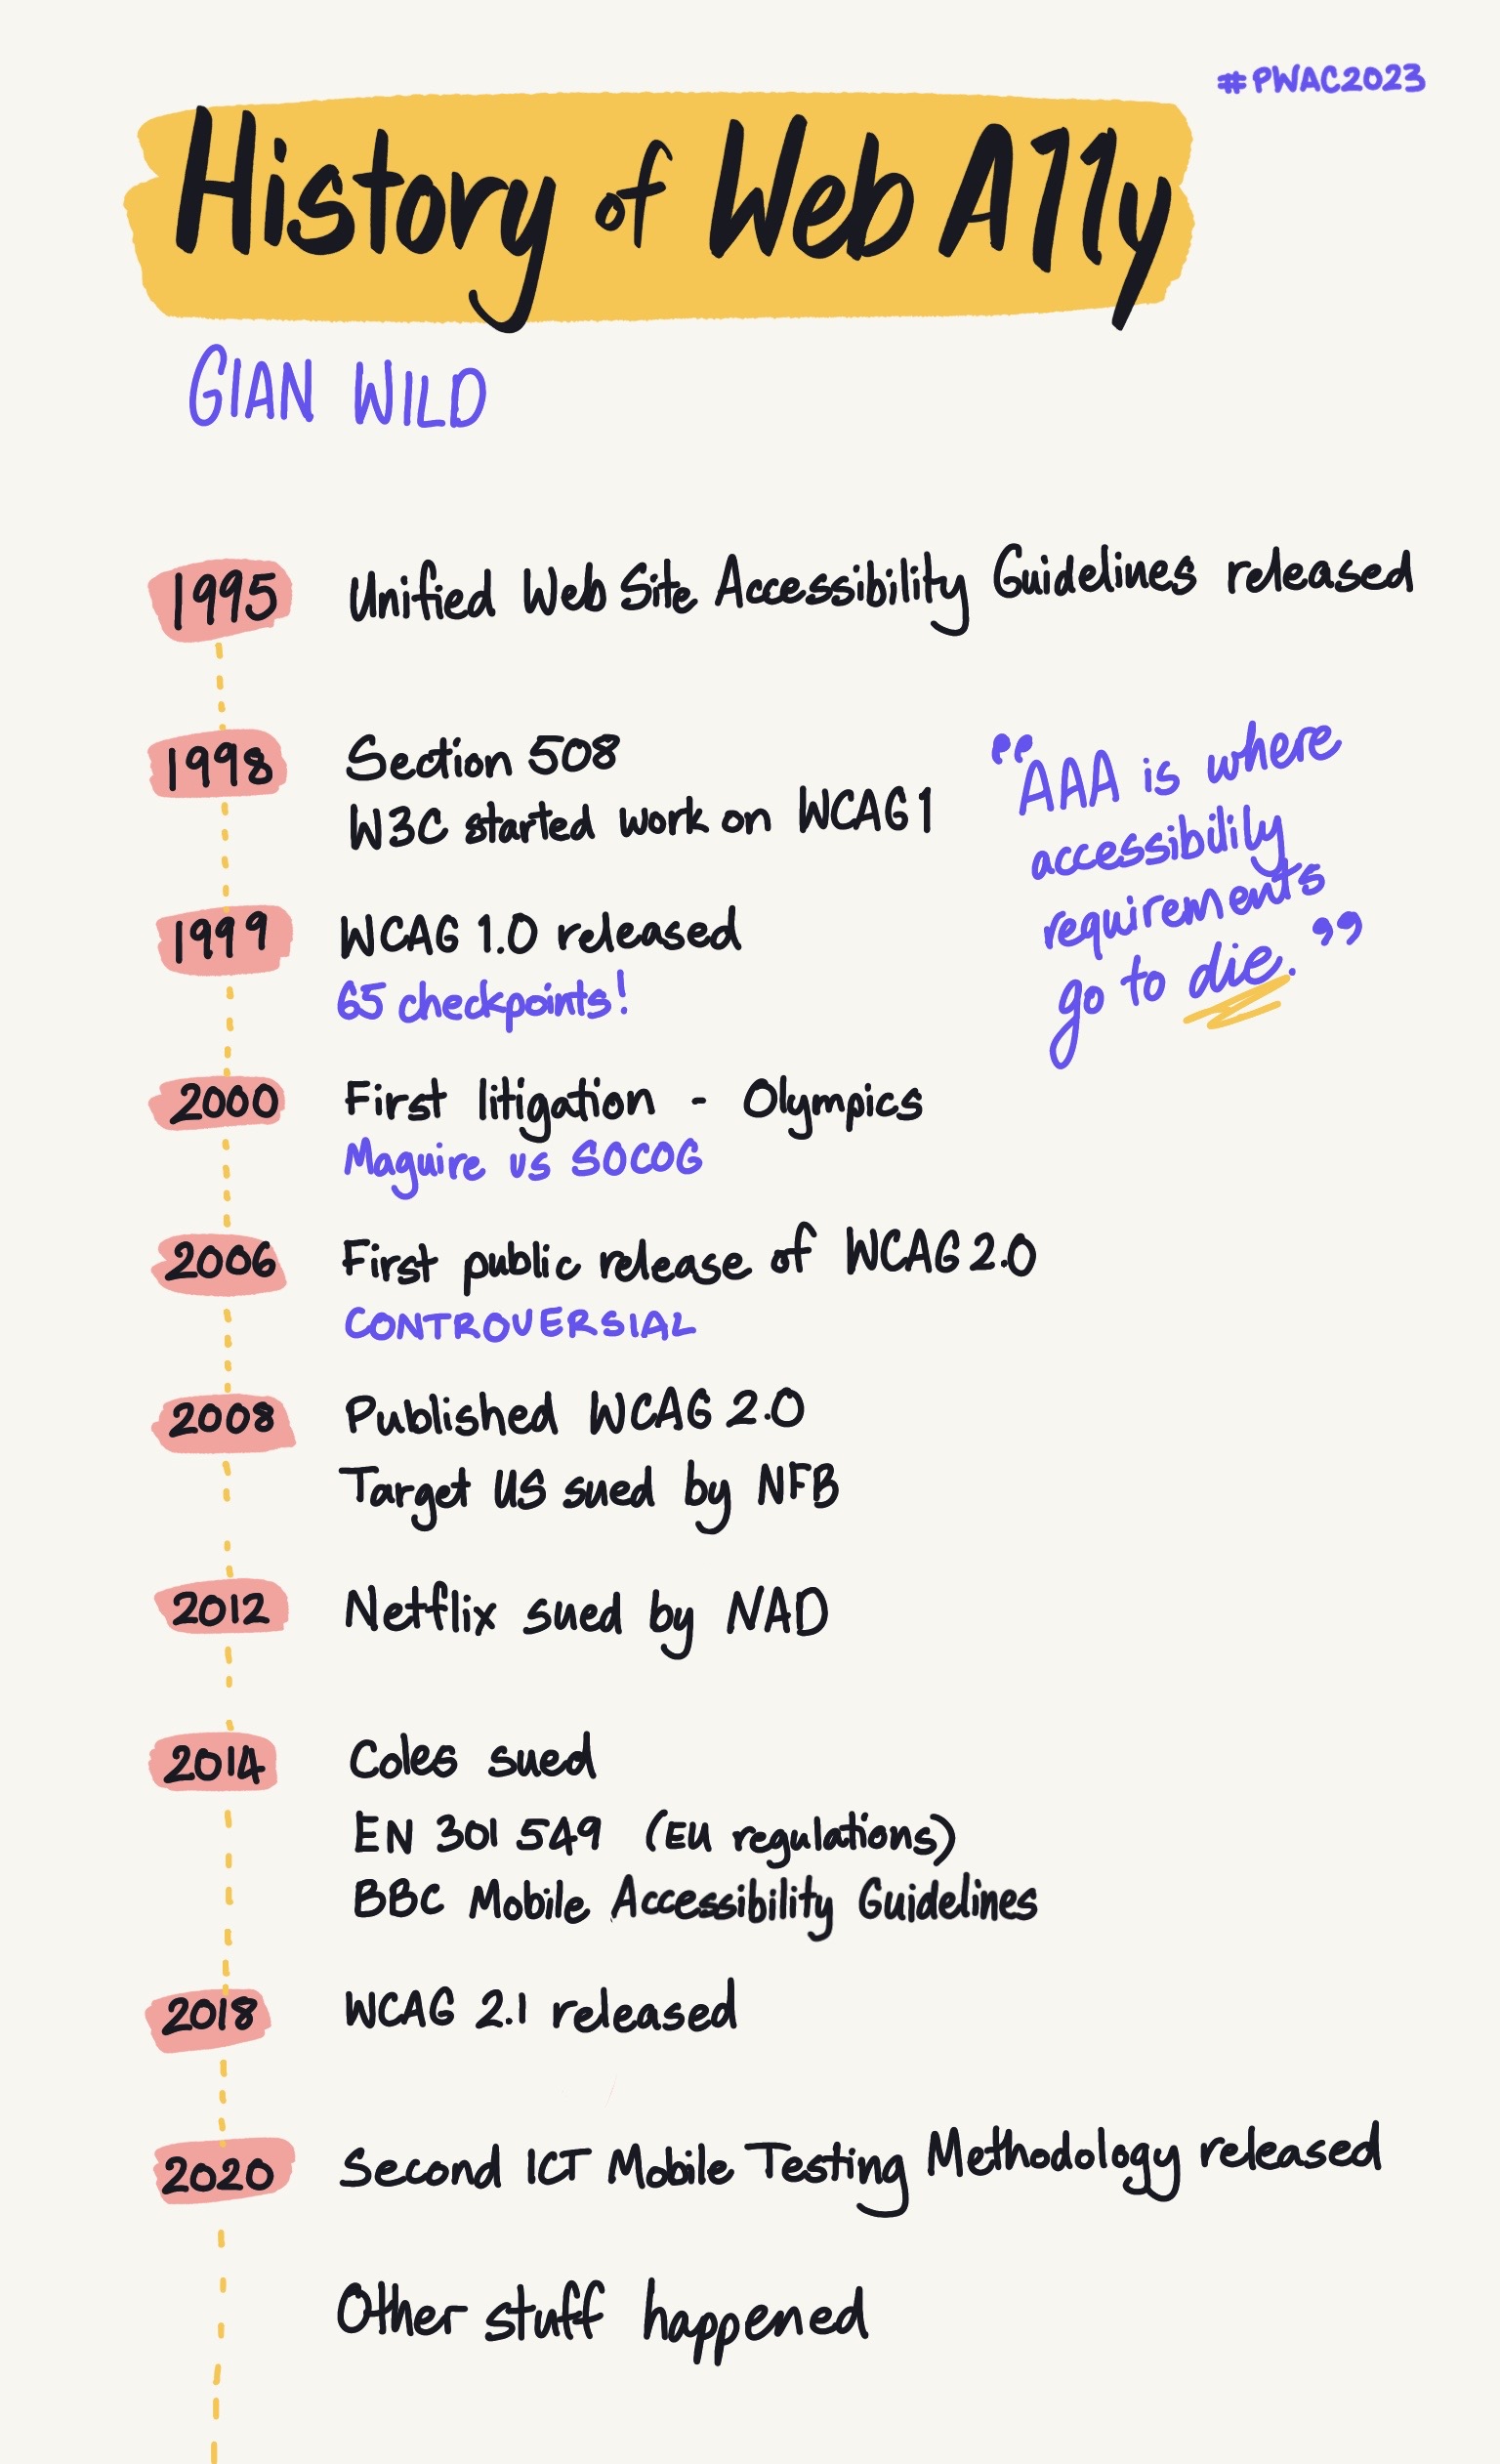 #PWAC2023
History of Web A11y
GIAN WILD
1995
Unified Web Site Accessibility Guidelines released
1998
Section 508
W3C started work on WCAG 1
"AAA is where
accessibility
requirements
go to die."
1999
WCAG 1.0 released
65 checkpoints!
2000
First litigation - Olympics
Maguire vs SOCOG
2006
First public release of WCAG 2.0
CONTROVERSIAL
2008
Published WCAG 2.0
Target US sued by NFB
2012
Netflix sued by NAD
2014
Coles sued
EN 301 549 (EU regulations)
BBC Mobile Accessibility Guidelines
2018
WCAG 2.1 released
2020
Second ICT Mobile Testing Methodology released
Other stuff happened